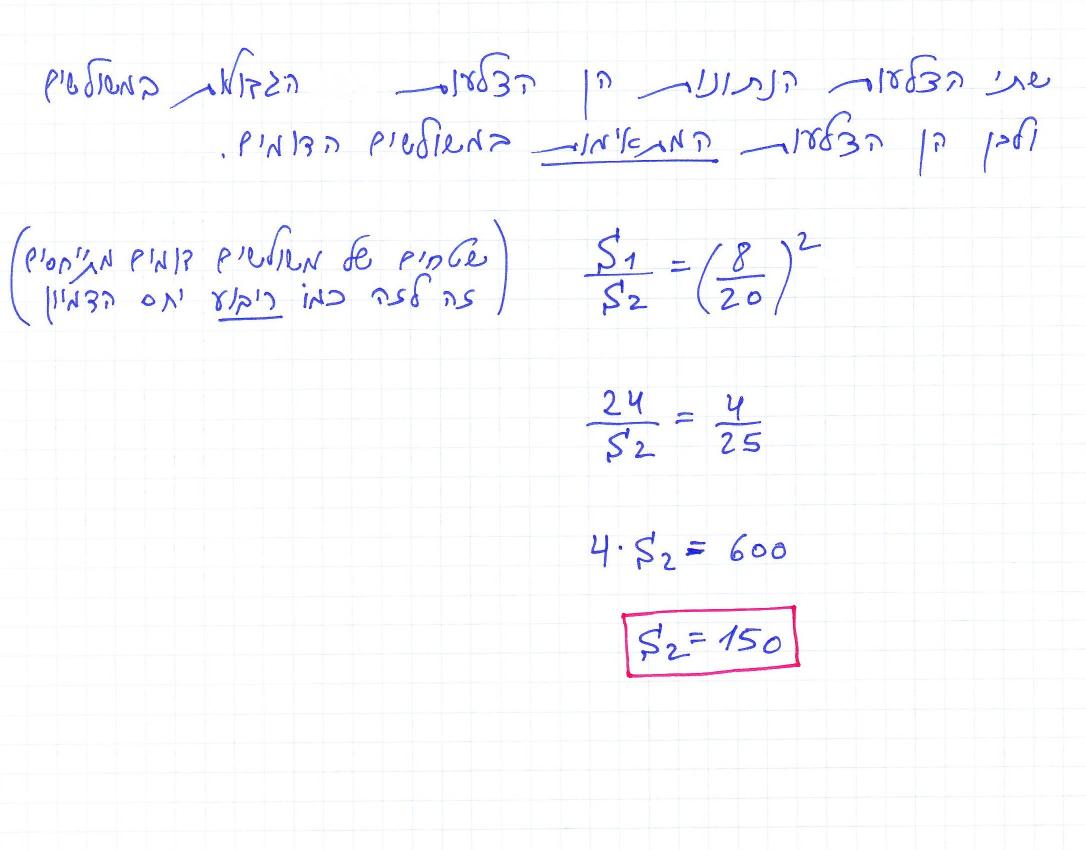 שתי הצלעות הנתונות הן הצלעות הגדולות במשולשים
ולכן הן הצלעות המתאימות במשולשים הדומים.
S1/S2 = (8/20)²
(שטחים של משולשים דומים מתייחסים
זה לזה כמו ריבוע יחס הדמיון)
24/S2 = 4/25
4·S2 = 600
S2 = 150